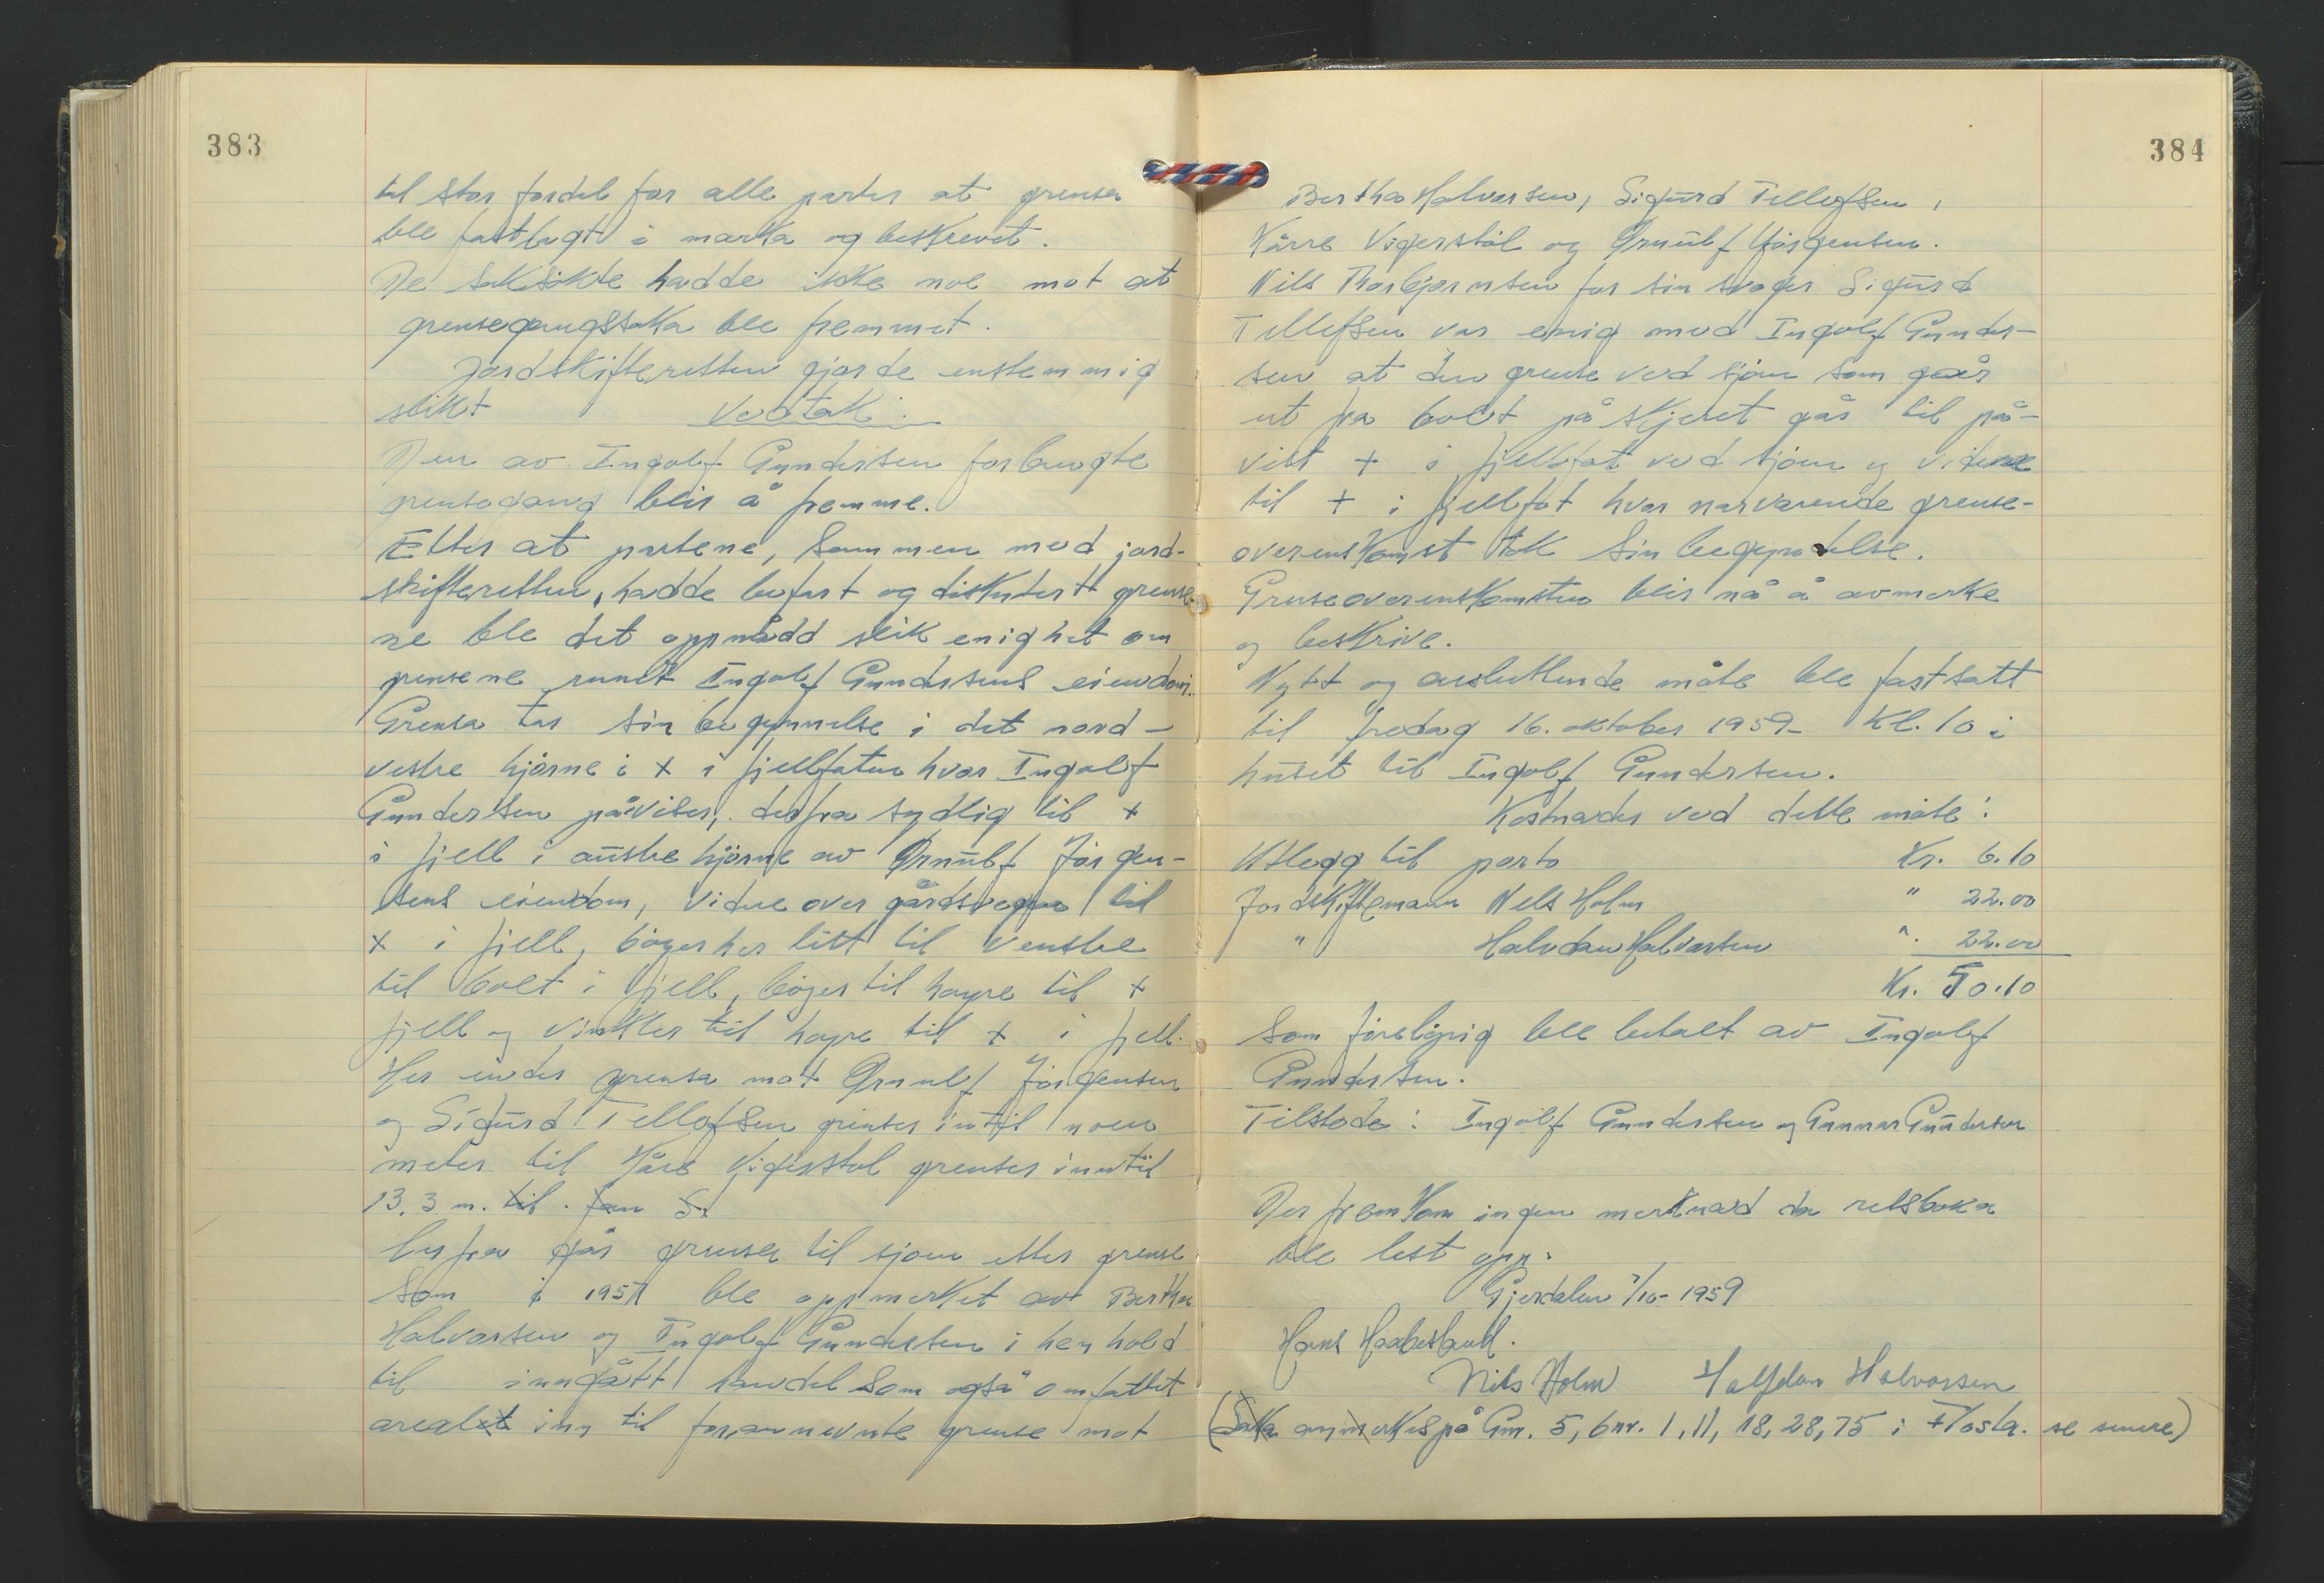 383
til stor fordel for alle parter at grensa
ble fastlagt i marka og beskrevet.
De saksökte hadde ikke noe mot at
grensegangssaka ble fremmet.
Jordskifteretten gjorde enstemmig
slikt vedtak:
Den av Ingolf Gundersen forlangte
grensegang blir å fremme.
Etter at partene, sammen med jord-
skifteretten, hadde befart og diskutert grense
ne ble det oppnådd slik enighet om
grensene rundt Ingolf Gundersens eiendom.
Grensa tar sin begynnelse i det nord-
vestre hjørne i x i fjellfoten hvor Ingolf
Gundersen påviser, derfra sydlig til x
i fjell i austre hjörne av Ørnulf Jörgen-
sens eiendom, videre over gårdsvegen til
x i fjell, böyer her litt til venstre
til bolt i fjell, böyer til høyre til x
fjell og vinkler til høyre til x i fjell.
Her ender grensa mot Ørnulf Jörgensen
og Sigurd Tellefsen grenser inntil noen
meter til Kåre Vigerstøl grenser inntil
13.3 m. til
herfra går grensa til sjøen etter grense
som i 1957 ble oppmerket av Bertha
Halvorsen og Ingolf Gundersen i henhold
til inngått handel som også omfattet
arealet inn til forannevnte grense mot
384
Bertha Halvorsen, Sigurd Tellefsen,
Kårre Vigerstøl og Ørnulf Jörgensen.
Nils Thorbjørnsen for sin svoger Sigurd
Tellefsen var enig med Ingolf Gunder-
sen at den grense ved sjøen som går
ut fra bolt på skjeret går til på-
vist + i fjellfot ved sjøen og videre
til + i fjellfot hvor nærværende grense-
overenskomst tok sin begynnelse.
Grenseoverenskomsten blir nå å avmerke
og beskrive.
Nytt og avsluttende møte ble fastsatt
til fredag 16. oktober 1959 - kl. 10 i
huset til Ingolf Gundersen.
Kostnader ved dette møte:
Utlegg til porto Kr. 6.10
Jordskiftemann Nils Holm " 22.00
" Halvdan Halvorsen " 22.00
Kr. 50.10
som foreløpig ble betalt av Ingolf
Gundersen.
Tilstede: Ingolf Gundersen og Gunnar Gundersen
Der fremkom ingen merknad da retsboka
ble lest opp.
Gjerdalen 7/10 - 1959
Hans
Nils Holm Halfdan Halvorsen
(Saka anmerkes på Gnr. 5, bnr. 1, 11, 18, 28, 75 i Flosta. se senere)